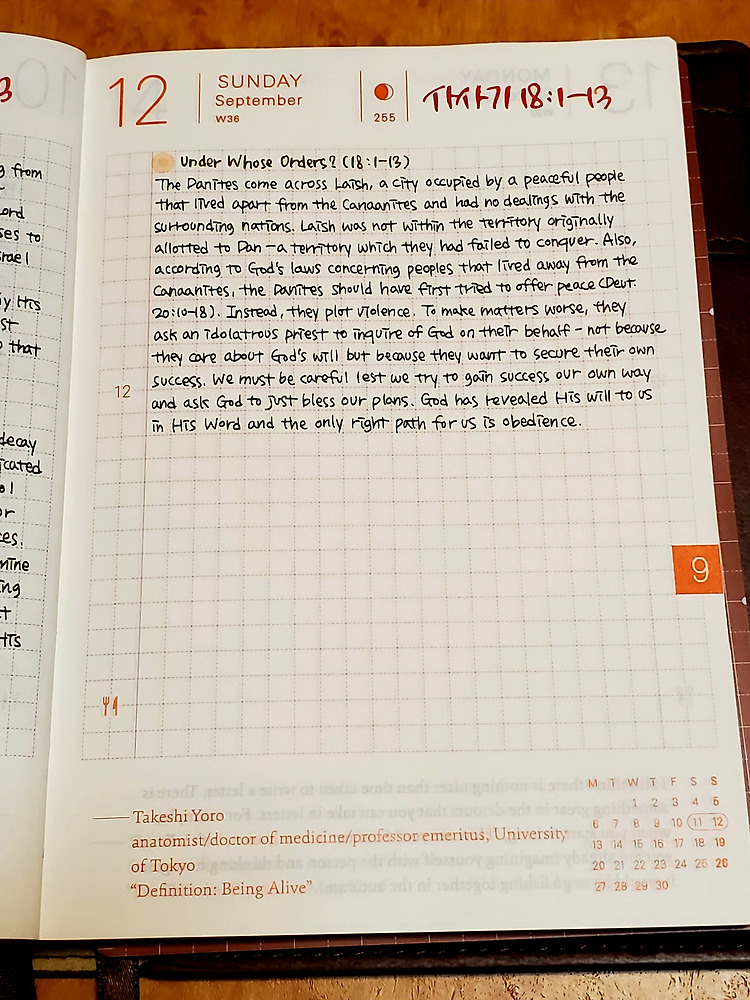 12
SUNDAY
September
W36
255
사사기 18:1-13
Under Whose Orders? (18:1-13)
The Danites come across Laish, a city occupied by a peaceful people
that lived apart from the Canaanites and had no dealings with the
surrounding nations. Laish was not within the territory originally
allotted to Dan - a territory which they had failed to conquer. Also,
according to God's laws concerning peoples that lived away from the
Canaanites, the Danites should have first tried to offer peace (Deut.
20:10-18). Instead, they plot violence. To make matters worse, they
ask an idolatrous priest to inquire of God on their behalf - not because
they care about God's will but because they want to secure their own
success. We must be careful lest we try to gain success our own way
12
and ask God to just bless our plans. God has revealed His will to us
in His Word and the only right path for us is obedience.
9
— Takeshi Yoro
anatomist/doctor of medicine/professor emeritus, University
of Tokyo
“Definition: Being Alive”
M T W T F S S
1 2 3 4 5
6 7 8 9 10 11 12
13 14 15 16 17 18 19
20 21 22 23 24 25 26
27 28 29 30
3
from
ord
ses to
srael
His
st
that
decay
icated
ol
or
ces.
mine
ing
t
His